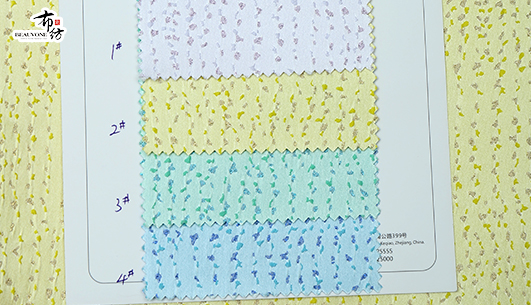 布纺
BEAUVONE
1#
2#
3#
4#
公路399号
Zhejiang, China
5555
5000